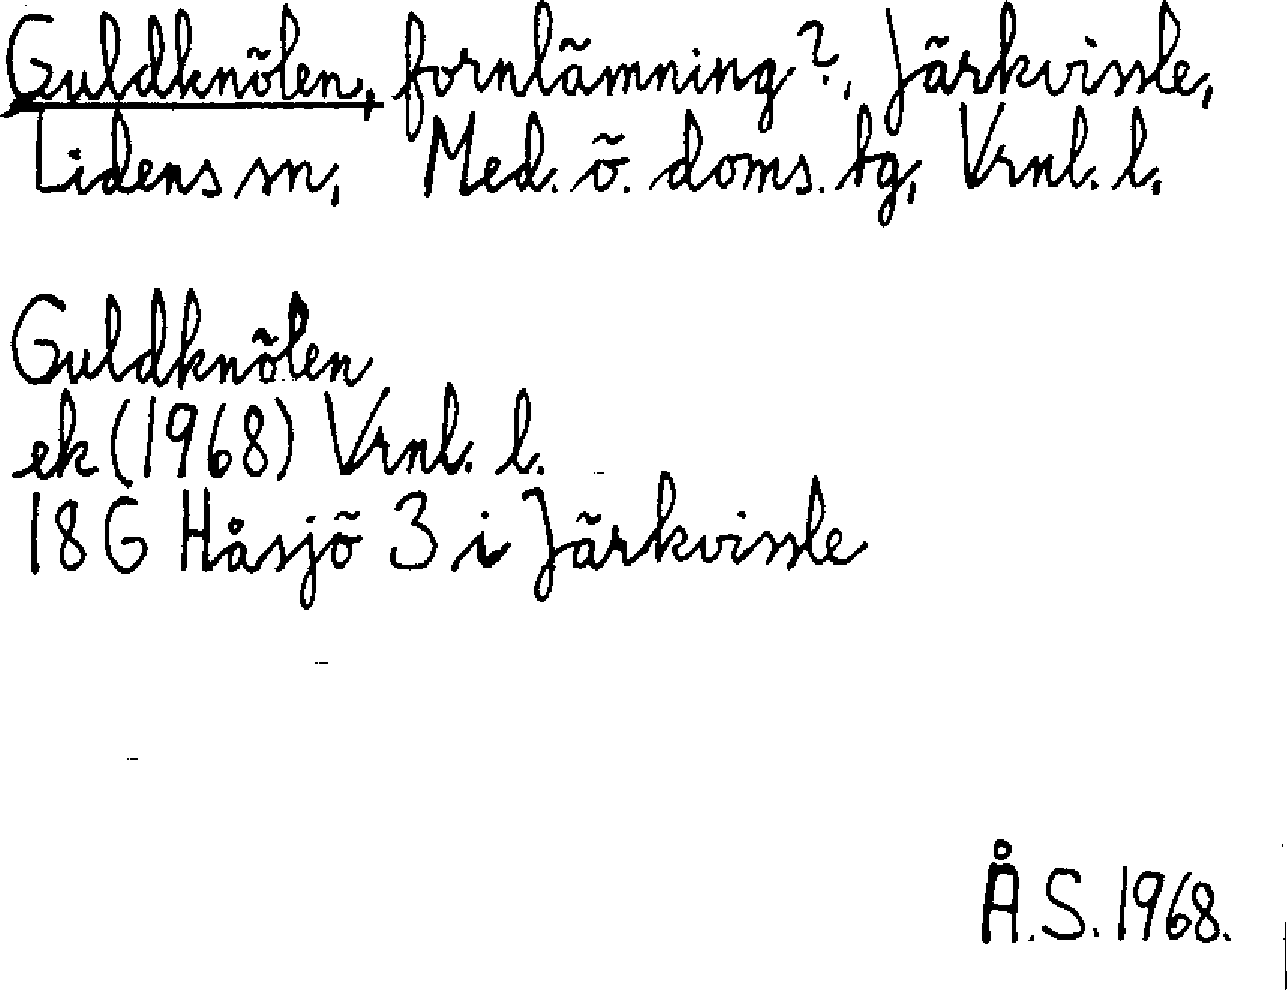 Guldknölen, fornlämning?, Järkvissle,
Lidens sn, Med. ö. doms. tg, Vrnl. l.
Guldknölen
ek (1968) Vrnl. l.
18G Håsjö 3 i Järkvissle
Å.S. 1968.